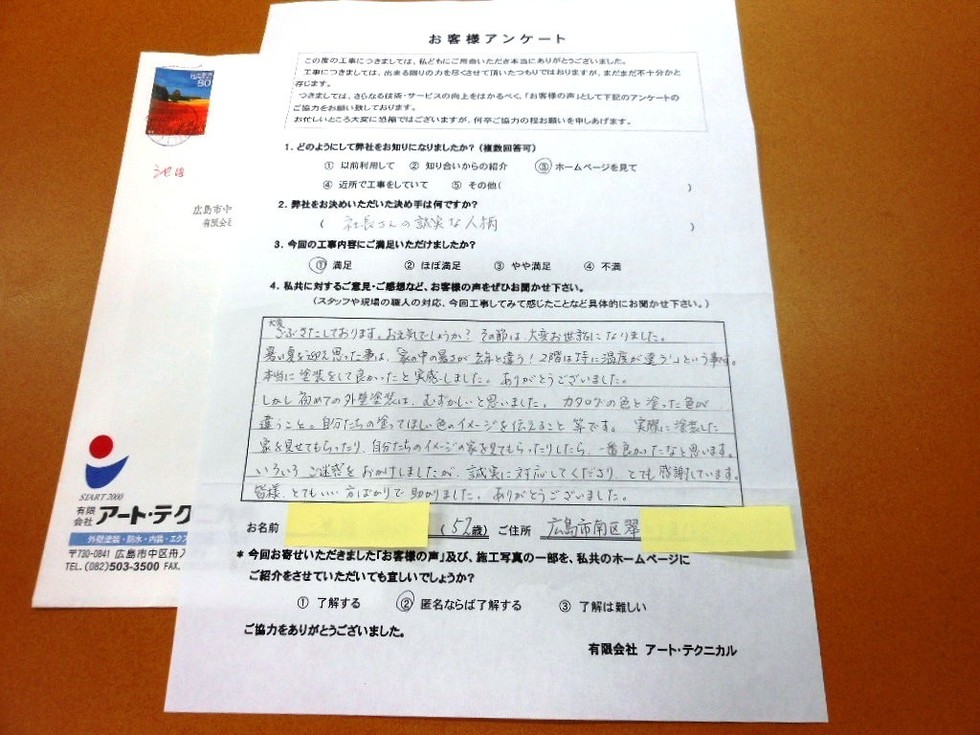 お客様アンケート
この度の工事につきましては、私どもにご用命いただき本当にありがとうございました。
工事につきましては、出来る限りの力を尽くさせて頂いたつもりではおりますが、まだまだ不十分かと
存じます。
つきましては、さらなる技術・サービスの向上をはかるべく、「お客様の声」として下記のアンケートの
ご協力をお願い致しております。
お忙しいところ大変に恐縮ではございますが、何卒ご協力の程お願いを申しあげます。
1．どのようにして弊社をお知りになりましたか？（複数回答可）
① 以前利用して ② 知り合いからの紹介 ③ ホームページを見て
④ 近所で工事をしていて ⑤ その他( )
2．弊社をお決めいただいた決め手は何ですか？
( 社長さんの誠実な人柄 )
3．今回の工事内容にご満足いただけましたか？
① 満足 ② ほぼ満足 ③ やや満足 ④ 不満
4．私共に対するご意見・ご感想など、お客様の声をぜひお聞かせ下さい。
（スタッフや現場の職人の対応、今回工事してみて感じたことなど具体的にお聞かせ下さい。）
大変
ごぶさたしております。お元気でしょうか？その節は大変お世話になりました。
暑い夏を迎え思った事は、「家の中の暑さが去年と違う！2階は特に温度が違う！」という事です。
本当に塗装をして良かったと実感しました。ありがとうございました。
しかし初めての外壁塗装は、むずかしいと思いました。カタログの色と塗った色が
違うこと。自分たちの塗ってほしい色のイメージを伝えること 等です。実際に塗装した
家を見せてもらったり、自分たちのイメージの家を見てもらったりしたら、一番良かったなと思います。
いろいろ ご迷惑をおかけしましたが、誠実に対応してくださり、とても感謝しています。
皆様、とてもいい方ばかりで助かりました。ありがとうございました。
お名前 (52歳) ご住所 広島市南区翠
* 今回お寄せいただきました「お客様の声」及び、施工写真の一部を、私共のホームページに
ご紹介をさせていただいても宜しいでしょうか？
① 了解する ② 匿名ならば了解する ③ 了解は難しい
ご協力をありがとうございました。
有限会社 アート・テクニカル
80
広島市中
有限
START 2000
有限
会社 アート・テク
外壁塗装・防水・内装・エク
〒730-0841 広島市中区舟入
TEL. (082)503-3500 FAX.